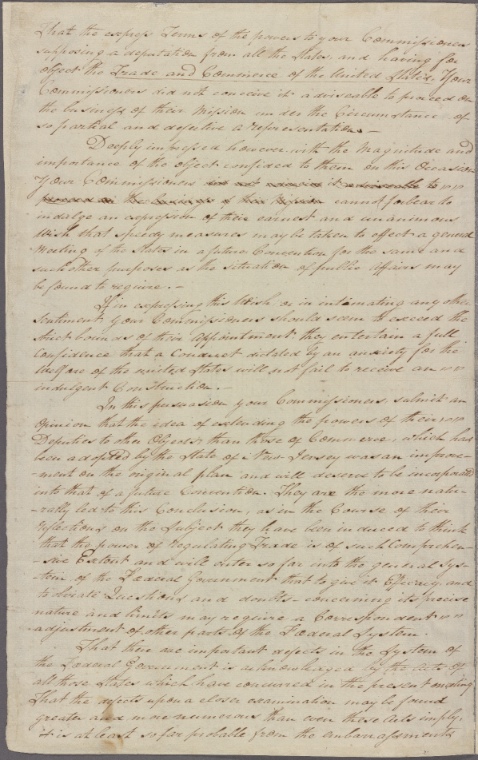 That the express Terms of the powers to your Commissioners
supposing a deputation from all the States, and having for
object the Trade and Commerce of the United States, Your
Commissioners did not conceive it adviseable to proceed on
the business of their Mission under the Circumstance of
so partial and defective a representation. —
Deeply impressed however with the Magnitude and
importance of the object confided to them on this Occasion
Your Commissioners did not conceive it adviseable to
proceed on the business of their Mission cannot forbear to
indulge an expression of their earnest and unanimous
Wish that speedy measures may be taken to effect a general
Meeting of the States in a future Convention for the same and
such other purposes as the situation of public Affairs may
be found to require. —
If in expressing this Wish or in intimating any other
sentiment Your Commissioners should seem to exceed the
strict bounds of their Appointment they entertain a full
Confidence that a Conduct dictated by an anxiety for the
Welfare of the united States will not fail to receive an
indulgent Construction. —
In this persuasion your Commissioners submit an
Opinion that the idea of extending the powers of their
Deputies to other Objects than those of Commerce, which has
been adopted by the State of New Jersey was an improve-
-ment on the original plan and will deserve to be incorporated
into that of a future Convention. They are the more natu-
-rally led to this Conclusion, as in the Course of their
reflections on the Subject they have been induced to think
that the power of regulating Trade is of such Comprehen-
-sive Extent and will enter so far into the general Sys-
-tem of the Fœderal Government that to give it Efficacy and
to obviate Questions and doubts concerning its precise
nature and limits may require a Correspondent
adjustment of other parts of the Fœderal System.
That there are important defects in the System of
the Fœderal Government is acknowledged by the Acts of
all those States which have concurred in the present meeting
That the defects upon a closer examination may be found
greater and more numerous than even these Acts imply,
it is at least so far probable from the embarrassments